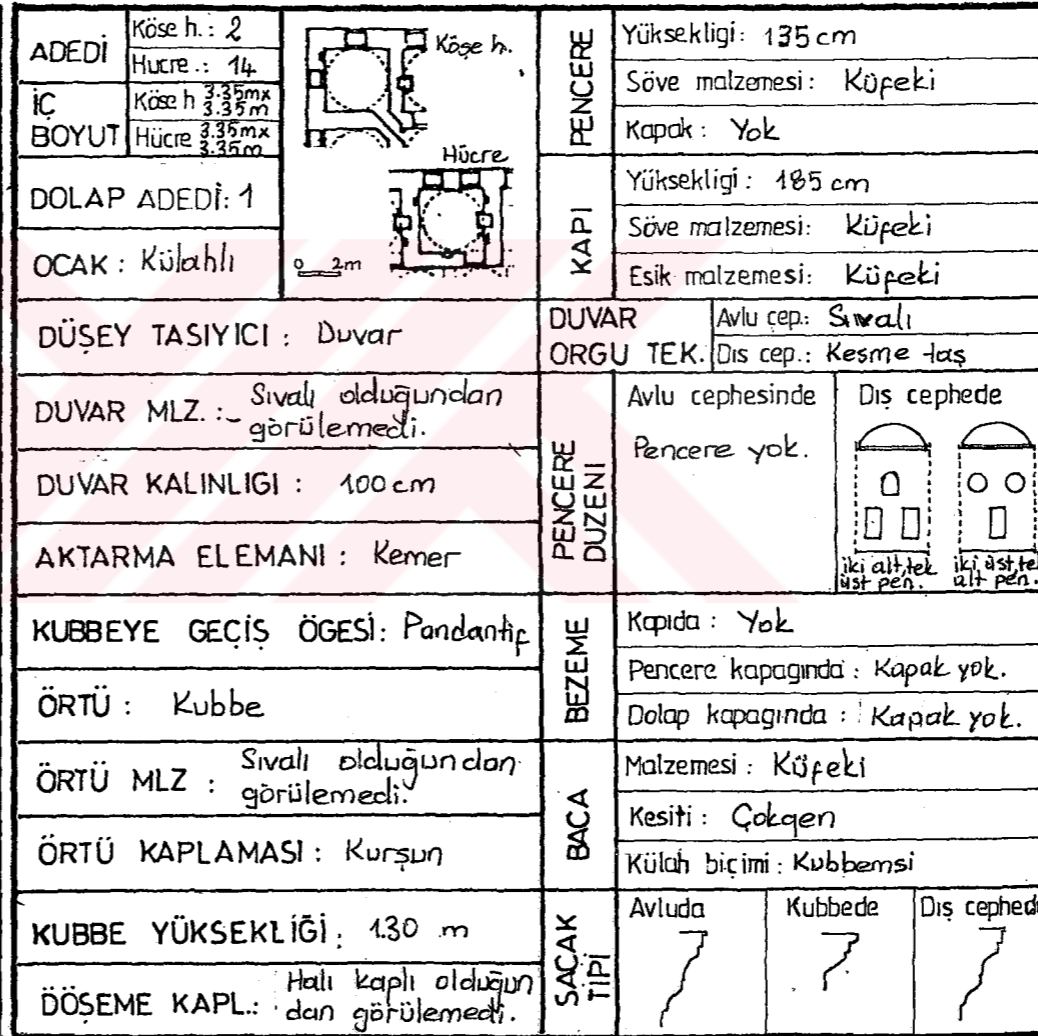 ADEDİ
Köse h.: 2
Hucre.: 14
İÇ
BOYUT
Köse h 3.35mx
3.35m
Hücre 3.35mx
3.35m
Köşe h.
Hücre
0 2m
DOLAP ADEDİ: 1
OCAK : Külahlı
DÜŞEY TASIYICI : Duvar
DUVAR MLZ. :- Sıvalı olduğundan
görülemedi.
DUVAR KALINLIGI : 100 cm
AKTARMA ELEMANI : Kemer
KUBBEYE GEÇİŞ ÖGESİ: Pandantif
ÖRTÜ : Kubbe
ÖRTÜ MLZ : Sıvalı olduğundan
görülemedi.
ÖRTÜ KAPLAMASI : Kurşun
KUBBE YÜKSEKLİĞİ: 1.30 m
DÖŞEME KAPL.: Halı kaplı olduğun
dan görülemedi.
PENCERE
Yüksekligi: 135 cm
Söve malzemesi: Küfeki
Kapak : Yok
KAPI
Yüksekligi : 185 cm
Söve malzemesi: Küfeki
Esik malzemesi: Küfeki
DUVAR
ORGU TEK.
Avlu cep.: Sıvalı
Dıs cep.: Kesme taş
PENCERE
DUZENI
Avlu cephesinde
Pencere yok.
Dış cephede
iki alt, tek
üst pen.
iki üst, tek
alt pen.
BEZEME
Kapıda : Yok
Pencere kapagında : Kapak yok.
Dolap kapagında : Kapak yok.
BACA
Malzemesi : Küfeki
Kesiti : Çokgen
Külah biçimi : Kubbemsi
SAÇAK
TİPİ
Avluda
Kubbede
Dış cephede